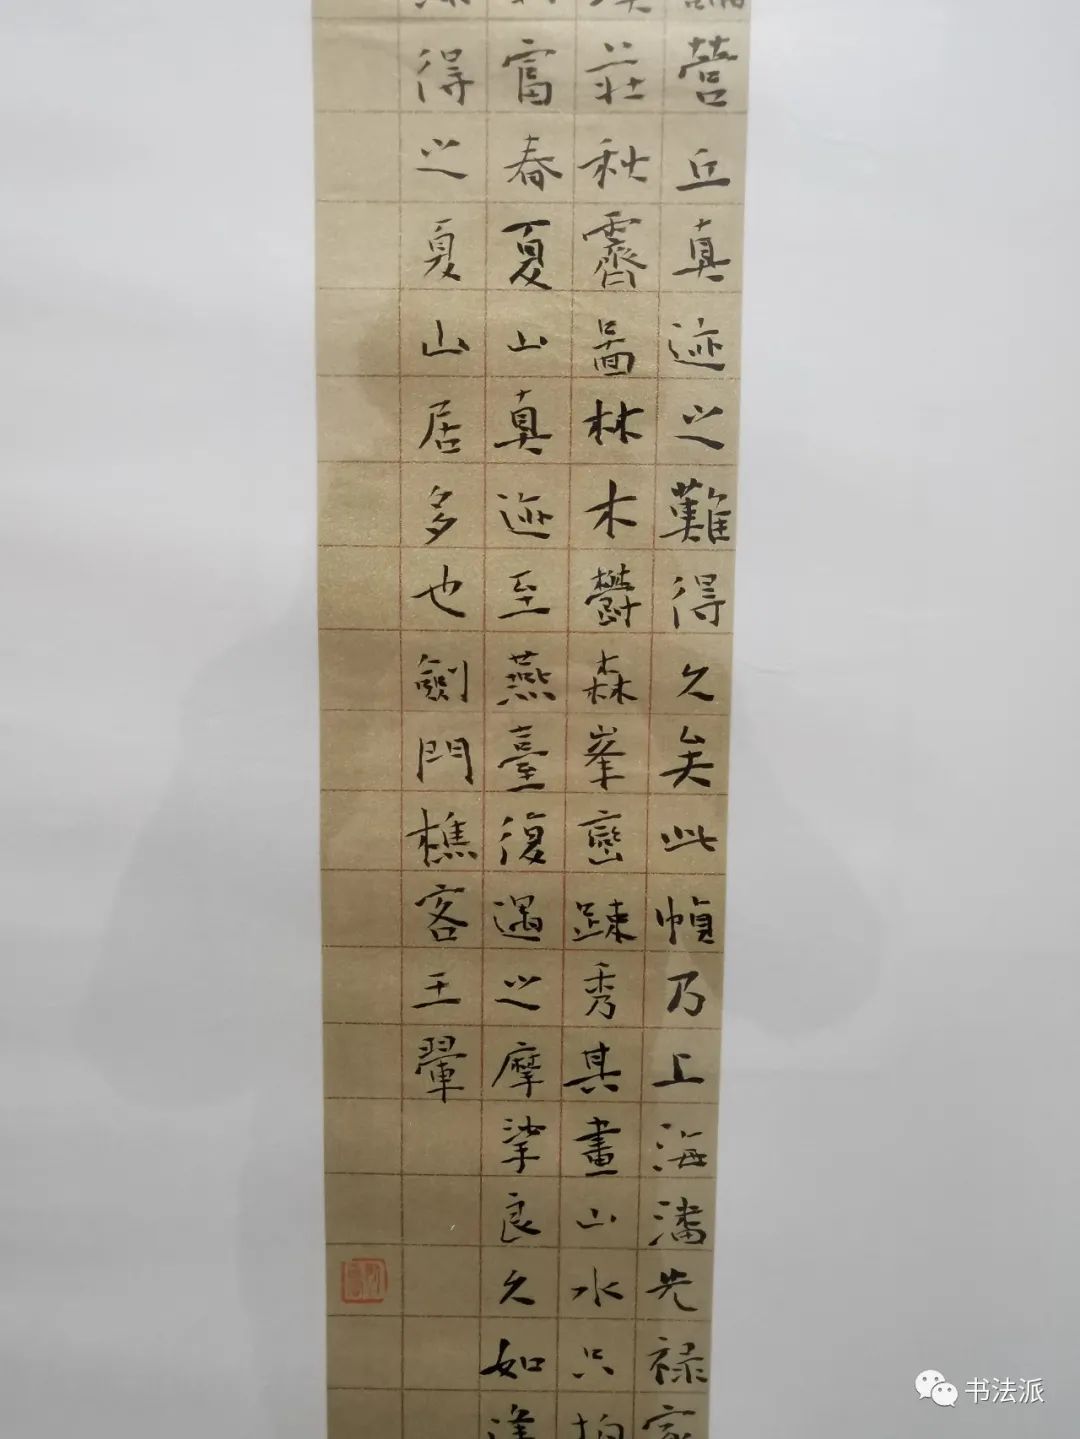 營丘真迹之難得久矣此幀乃上海潘光禄家
莊秋霽啚林木鬱森峯巒踈秀其畫山水只
富春夏山真迹至燕臺復遇之摩挲良久如逢
得之夏山居多也劒門樵客王翬
书法派